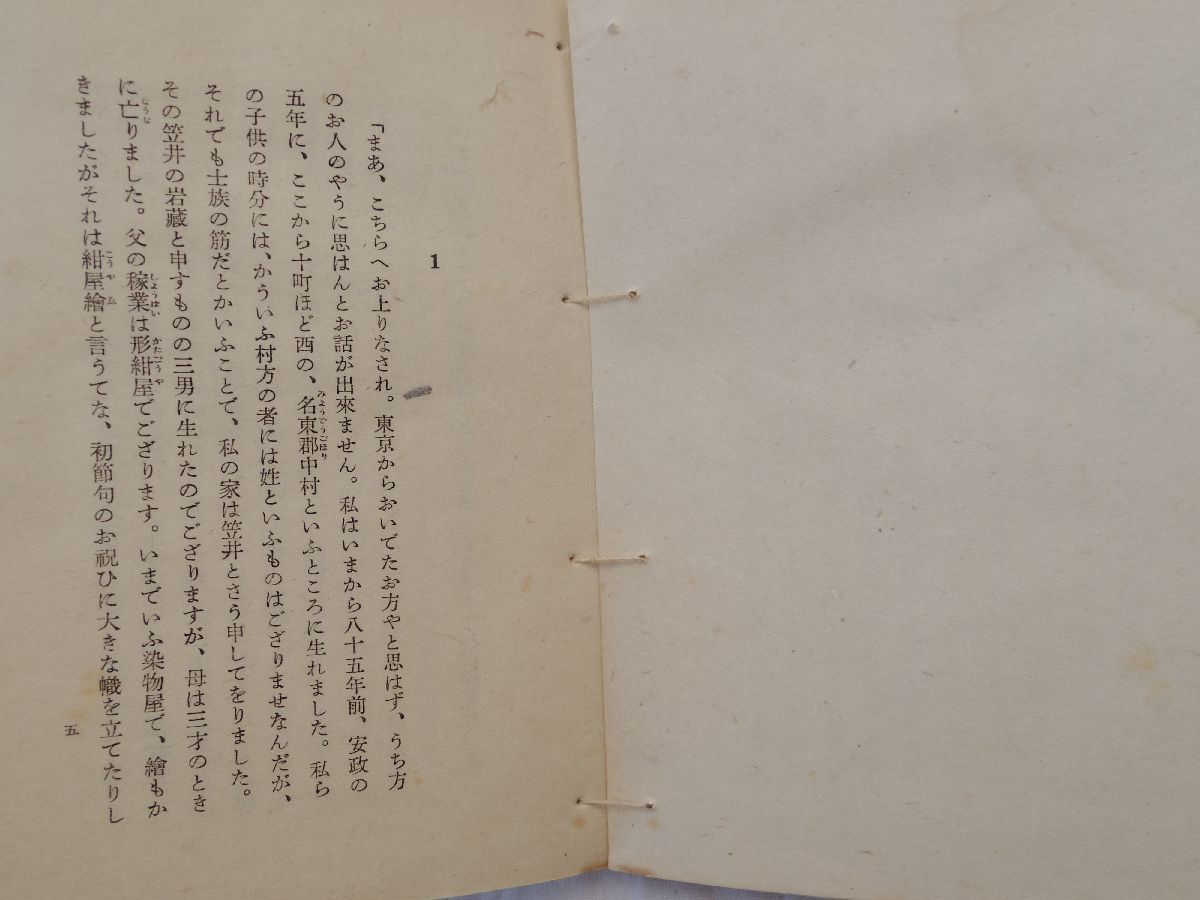 1
「まあ、こちらへお上りなされ。東京からおいでたお方やと思はず、うち方
のお人のやうに思はんとお話が出來ません。私はいまから八十五年前、安政の
五年に、ここから十町ほど西の、名東郡中村といふところに生れました。私ら
の子供の時分には、かういふ村方の者には姓といふものはござりませなんだが、
それでも士族の筋だとかいふことで、私の家は笠井とさう申してをりました。
その笠井の岩藏と申すものの三男に生れたのでござりますが、母は三才のとき
に亡りました。父の稼業は形紺屋でござります。いまでいふ染物屋で、繪もか
きましたがそれは紺屋繪と言うてな、初節句のお祝ひに大きな幟を立てたりし
五